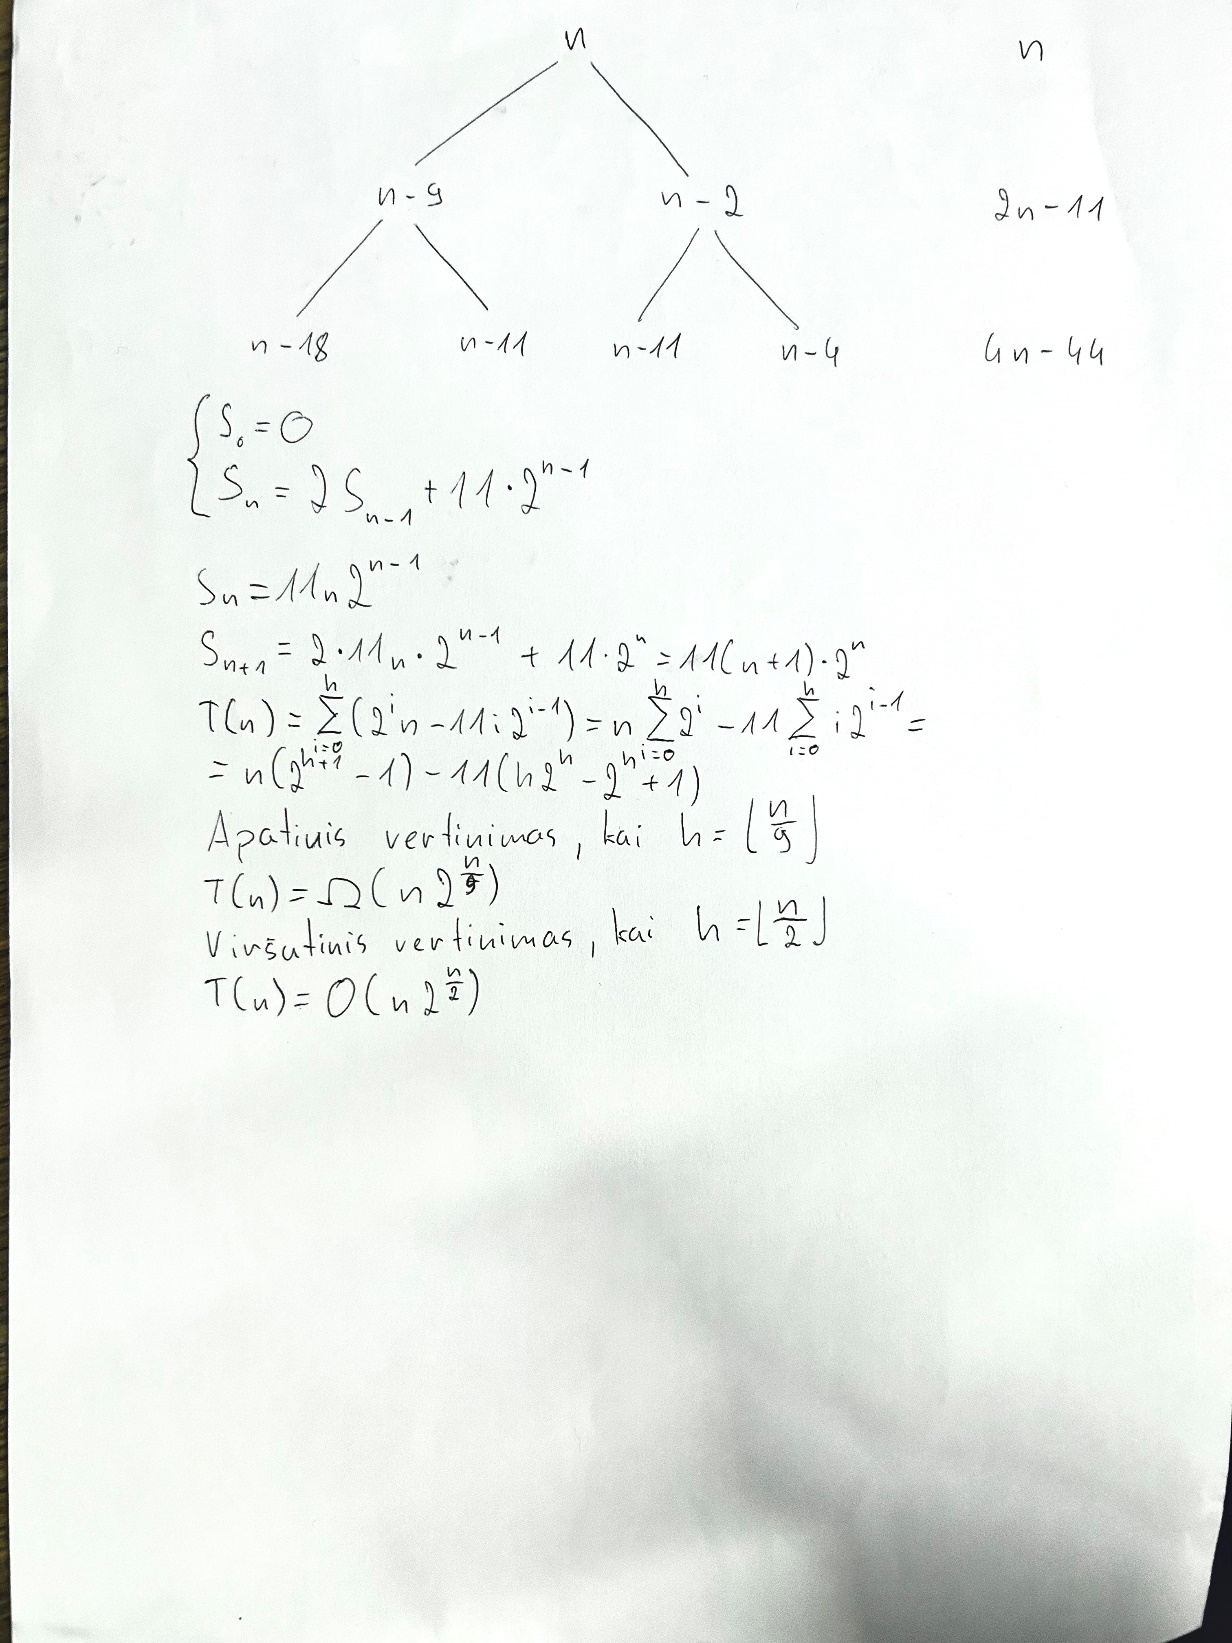 n n
n-9 n-2 2n-11
n-18 n-11 n-11 n-4 4n-44
{ S₀ = 0
S_n = 2S_{n-1} + 11·2^{n-1}
S_n = 11n2^{n-1}
S_{n+1} = 2·11n·2^{n-1} + 11·2^n = 11(n+1)·2^n
T(n) = ∑_{i=0}^{h} (2^i n - 11i2^{i-1}) = n ∑_{i=0}^{h} 2^i - 11 ∑_{i=0}^{h} i2^{i-1} =
= n(2^{h+1} - 1) - 11(h2^h - 2^h + 1)
Apatinis vertinimas, kai h = ⌊n/9⌋
T(n) = Ω(n2^{n/9})
Viršutinis vertinimas, kai h = ⌊n/2⌋
T(n) = O(n2^{n/2})